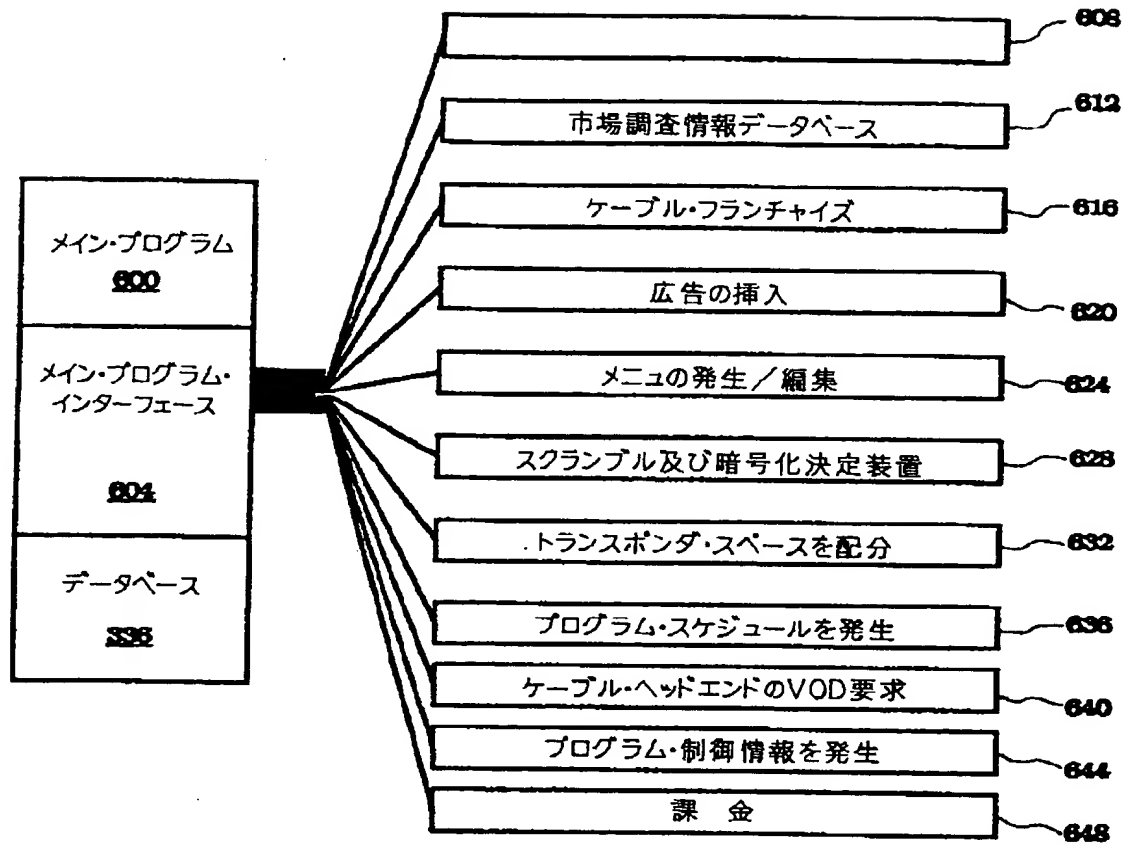 メイン・プログラム
600
メイン・プログラム・
インターフェース
604
データベース
336
608
市場調査情報データベース
612
ケーブル・フランチャイズ
616
広告の挿入
620
メニュの発生／編集
624
スクランブル及び暗号化決定装置
628
トランスポンダ・スペースを配分
632
プログラム・スケジュールを発生
636
ケーブル・ヘッドエンドのVOD要求
640
プログラム・制御情報を発生
644
課 金
648